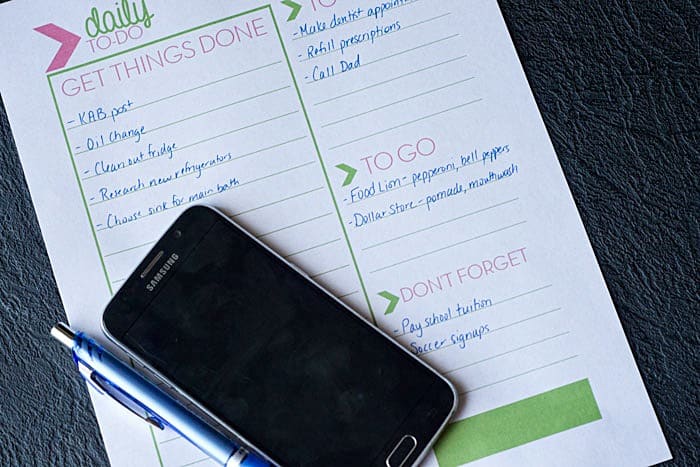 daily
TO-DO
GET THINGS DONE
- KAB post
- Oil change
- Clean out fridge
- Research new refrigerators
- Choose sink for main bath
TO
- Make dentist appointm
- Refill prescriptions
- Call Dad
TO GO
- Food Lion - pepperoni, bell peppers
- Dollar Store - pomade, mouthwash
DON'T FORGET
- Pay school tuition
Soccer signups
SAMSUNG